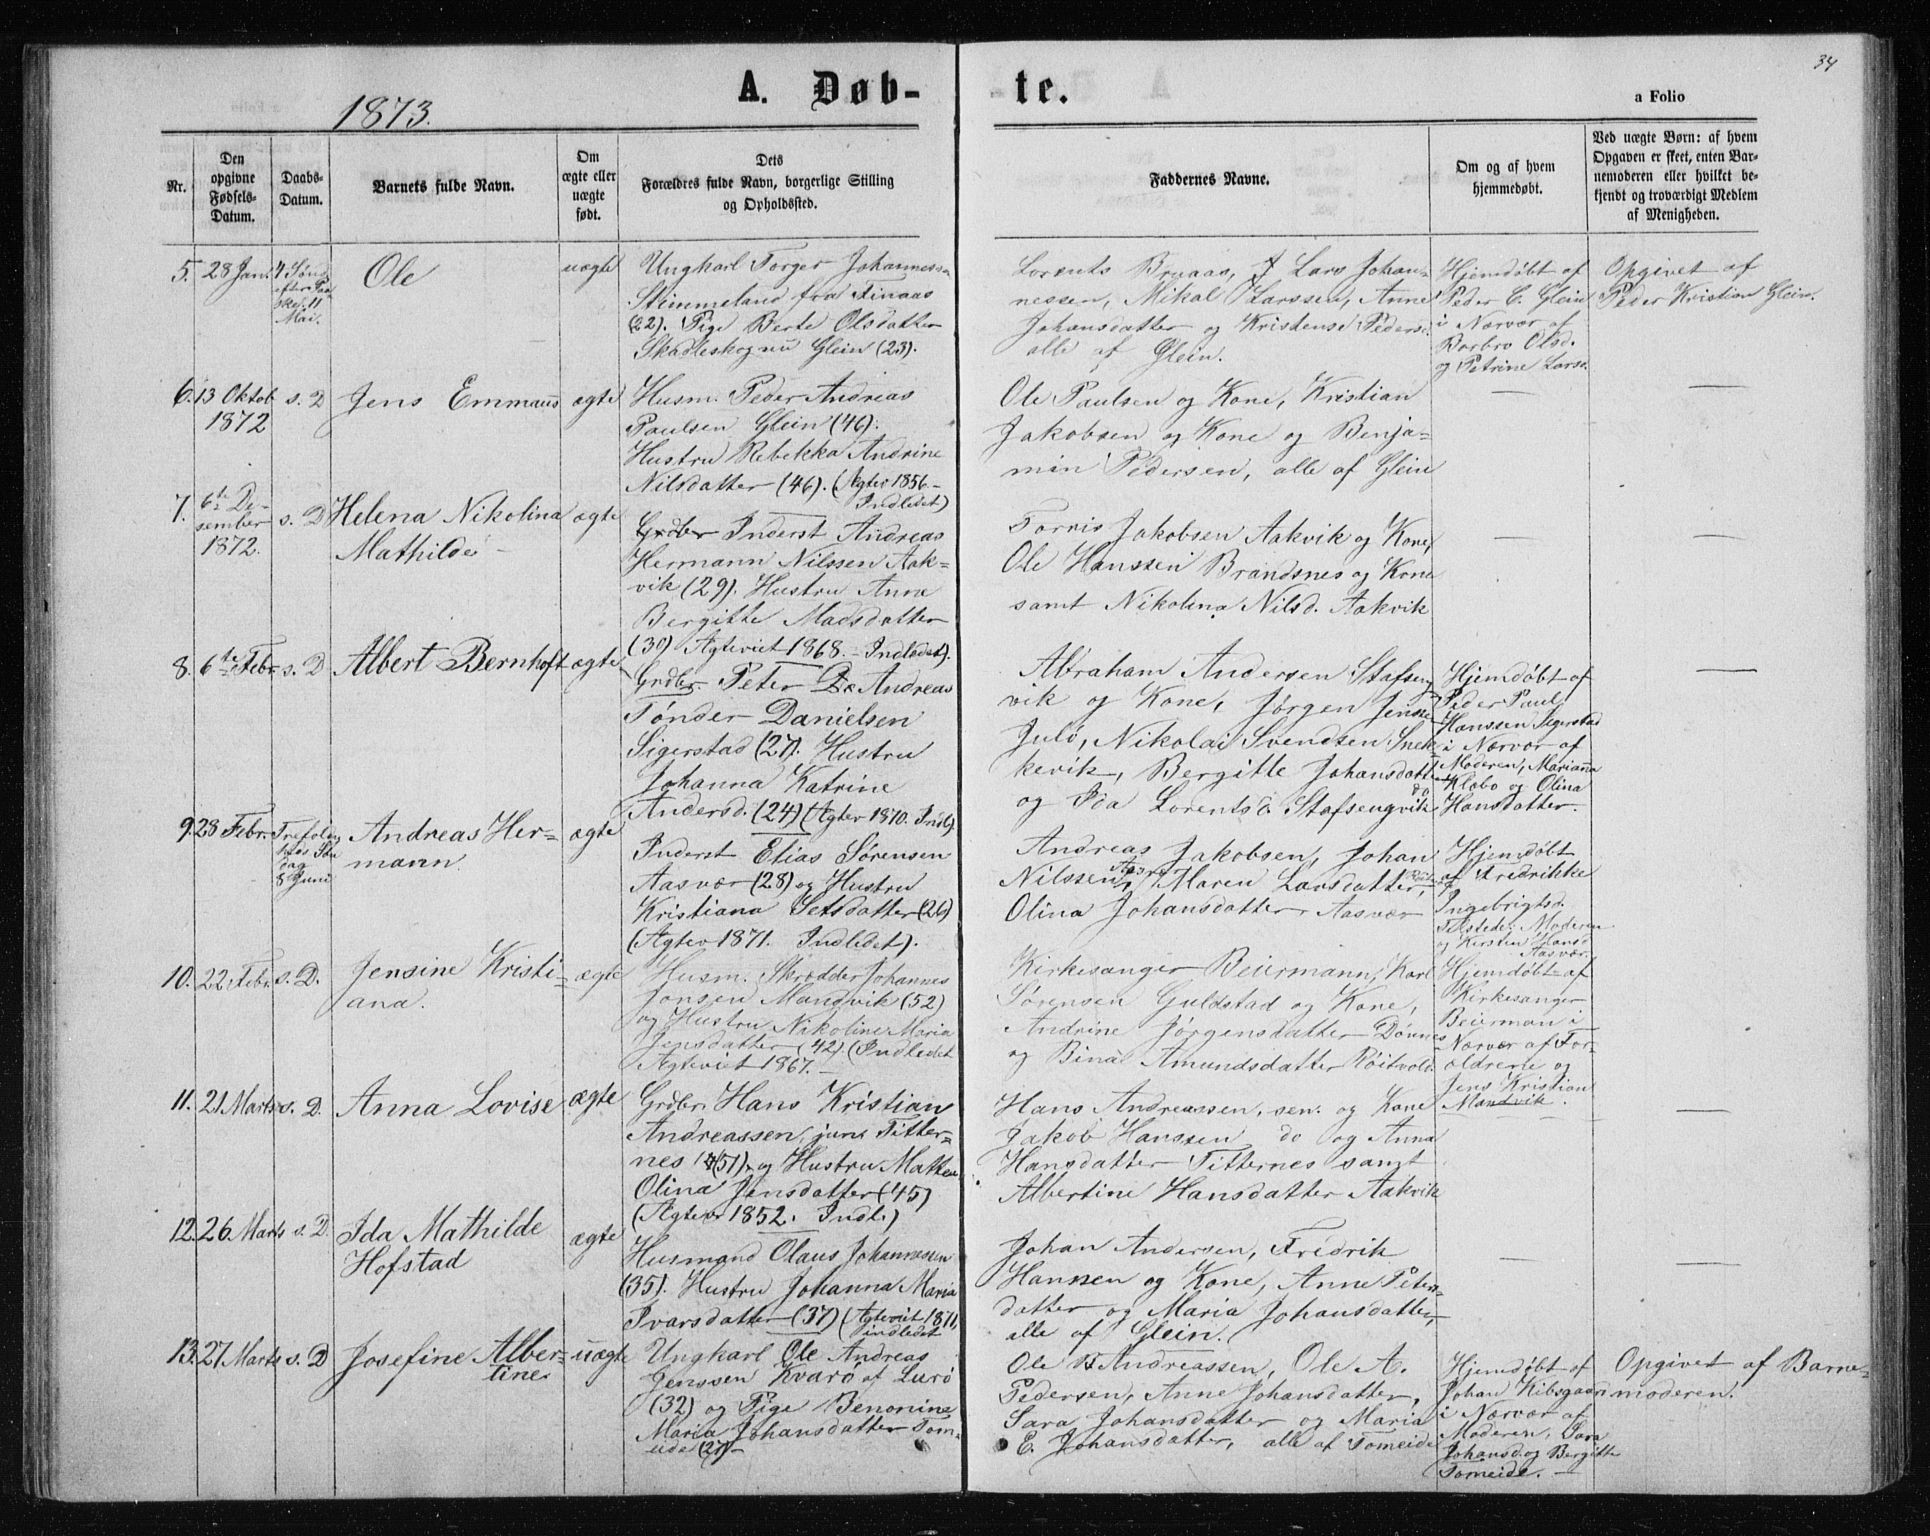 34
A. Døb-
te.
a Folio
1873.
Nr.
Den opgivne Fødsels-Datum.
Daabs-Datum.
Barnets fulde Navn.
Om ægte eller uægte født.
Dets Forældres fulde Navn, borgerlige Stilling og Opholdssted.
Faddernes Navne.
Om og af hvem hjemmedøbt.
Ved uægte Børn: af hvem Opgaven er skeet, enten Barnemoderen eller hvilket bekjendt og troværdigt Medlem af Menigheden.
5. 28 Jan. 4 Sønd. efter Paaske 11 Mai.
Ole
uægte
Ungkarl Torger Johanness.
Stimmeland fra Finaas
(22). Pige Berte Olsdatter
Skadleskog nu Glein (23).
Lorents Bruaas, Lars Johan-
nessen, Mikal Larssen, Anne
Johansdatter og Kristense Peders.
alle af Glein.
Hjemdøbt af
Peder C. Glein
i Nærvær af
Barbro Olsd.
og Petrine Lars.
Opgivet af
Peder Kristian Glein.
6. 13 Oktob 1872
s. D
Jens Emmaus
ægte
Husm. Peder Andreas
Paulsen Glein (46).
Hustru Rebekka Andrine
Nilsdatter (46). (Ægtev 1856.-
Indledet)
Ole Paulsen og Kone, Kristian
Jakobsen og Kone og Benja-
min Pedersen, alle af Glein
—
—
7. 6te De-
sember
1872.
s. D
Helena Nikolina
Mathilde
ægte
Grdbr Inderst Andreas
Hermann Nilssen Aak-
vik (29). Hustru Anne
Bergitte Madsdatter
(30) Ægteviet 1868. - Indledet).
Tornis Jakobsen Aakvik og Kone,
Ole Hanssen Brandsnes og Kone
samt Nikolina Nilsd. Aakvik
—
—
8. 6te Febr. s. D
Albert Bernhoft
ægte
Grdbr. Peter De Andreas
Tønder Danielsen
Sigerstad (27). Hustru
Johanna Katrine
Andersd. (24) (Ægtev 1870. Indl.)
Abraham Andersen Stafseng-
vik og Kone, Jørgen Jensse
Julø, Nikolai Svendsen Snek-
kevik, Bergitte Johansdatter do
og Ida Lorentsd. Stafsengvik
Hjemdøbt af
Peder Paul
Hanssen Segerstad
i Nærvær af
Moderen, Marianna
Klobo og Olina
Hansdatter.
—
9. 28 Febr. Trefoldigheds Søndag 8 Juni
Andreas Her-
mann
ægte
Inderst Elias Sørensen
Aasvær (28) og Hustru
Kristiana Setsdatter (26)
(Ægtev 1871. Indledet).
Andreas Jakobsen, Johan
Nilssen Aasvær, Maren Larsdatter,
Olina Johansdatter Aasvær
Hjemdøbt
af Fredrikke
Ingebrigtsd.
Tilstede: Moderen
og Kirsten Hansd
Aasvær.
10. 22 Febr. s. D.
Jensine Kristi-
ana.
ægte
Husm. Skrædder Johannes
Jonsen Mandvik (52)
og Hustru Nikoline Maria
Jensdatter (42) (Indledet
Ægteviet 1867. -
Kirkesanger Beiermann, Karl
Sørensen Guldstad og Kone,
Andrine Jørgensdatter Dønnes
og Bina Amundsdatter Røitvold.
Hjemdøbt af
Kirkesanger
Beierman i
Nærvær af For-
ældrene og
Jens Kristian
Mandvik.
11. 21 Marts s. D.
Anna Lovise
ægte
Grdbr. Hans Kristian
Andreassen, jun. Titter-
nes (51) og Hustru Matten
Olina Jensdatter (45)
(Ægtev 1852. Indl.)
Hans Andreassen, sen. og Kone
Jakob Hanssen do og Anna
Hansdatter Titternes samt
Albertine Hansdatter Aakvik
—
12. 26 Marts s. D
Ida Mathilde
Hofstad
ægte
Husmand Olaus Johannessen
(35). Hustru Johanna Maria
Ivarsdatter (37) (Ægteviet 1871,
indledet
Johan Andersen, Fredrik
Hanssen og Kone, Anne Peters-
datter og Maria Johansdatter,
alle af Glein.
—
—
13. 27 Marts s. D
Josefine Alber-
tine
uægte
Ungkarl Ole Andreas
Jenssen Kvarø af Lurø
(32) og Pige Benonine
Maria Johansdatter Tom-
eide (27)
Ole Andreassen, Ole A.
Pedersen, Anne Johansdatter,
Sara Johansdatter og Maria
E. Johansdatter, alle af Tomeide
Hjemdøbt af
Johan Kibsgaard
i Nærvær af
Moderen, Sara
Johansd. og Bergitte
Tomeide. —
Opgivet af Barne-
moderen.